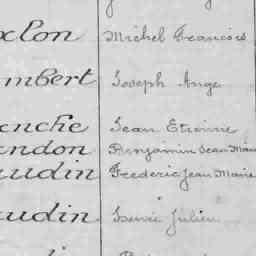 xlon Michel Francois
mbert Joseph Ange
anche Jean Etienne
andon Benjamin Jean Marie
audin Frederic Jean Marie
audin Désiré Julien